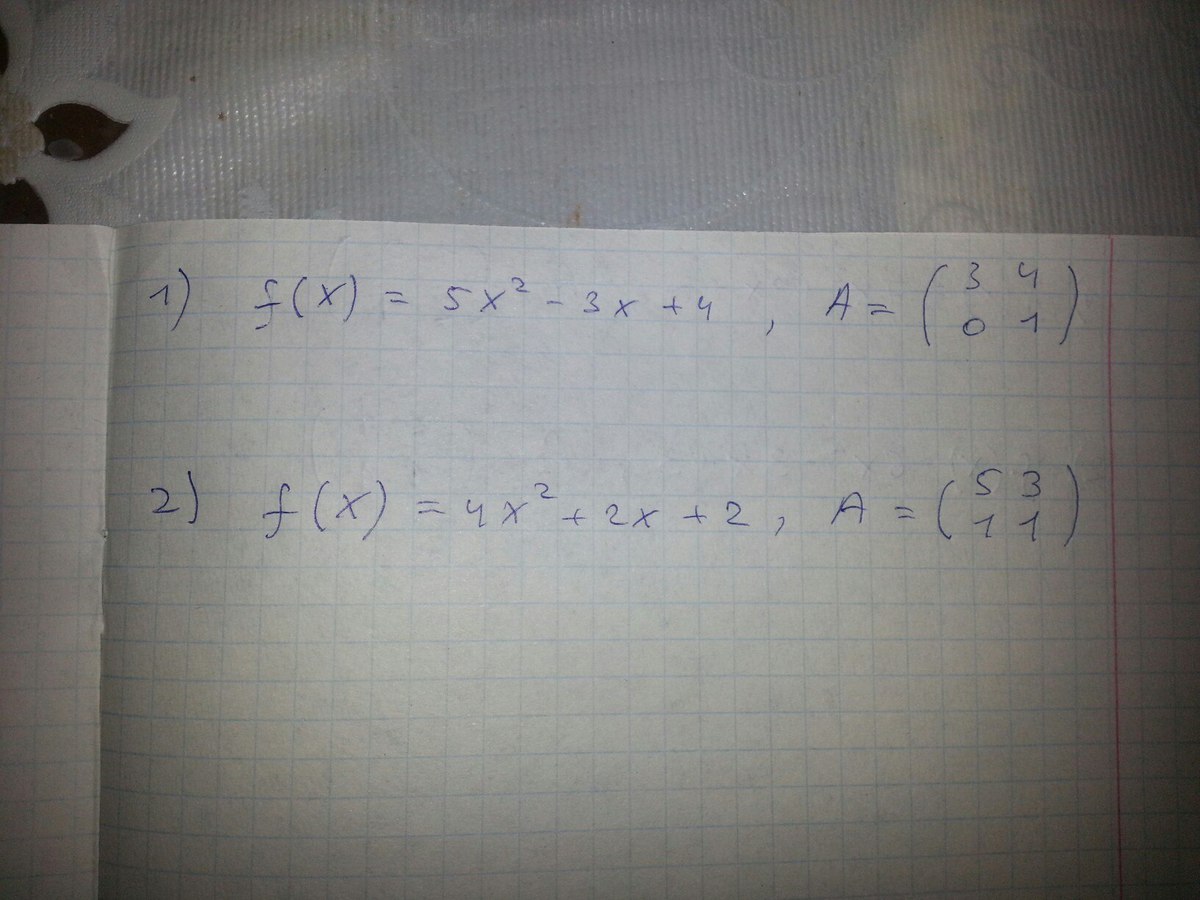 1) f(x) = 5x² - 3x + 4 , A = (3 4
0 1)
2) f(x) = 4x² + 2x + 2 , A = (5 3
1 1)